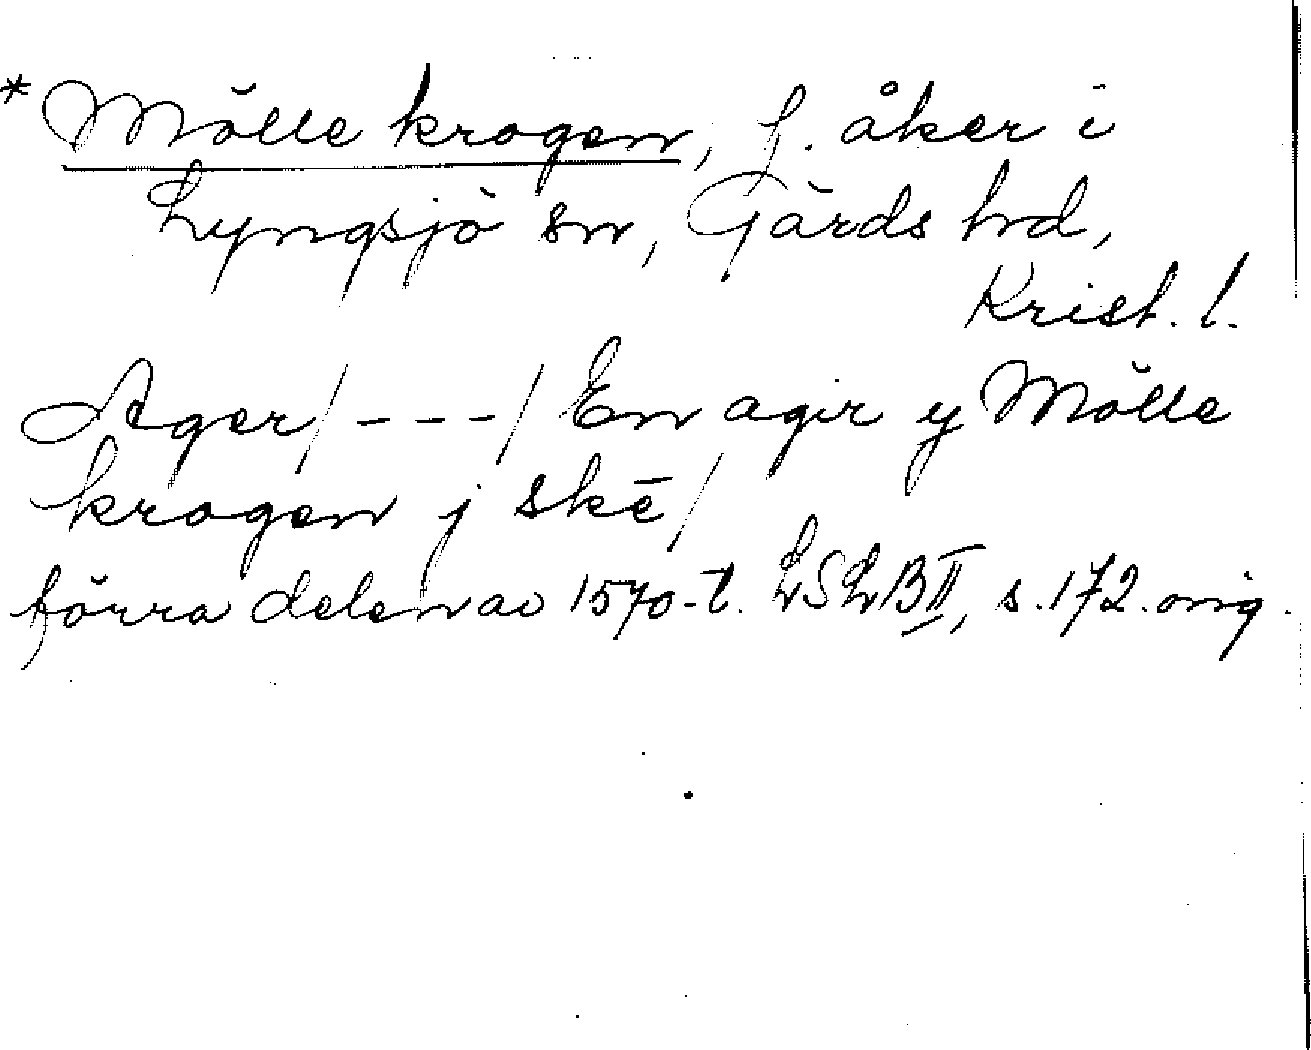 * Mölle krogen, f. åker i
Lyngsjö sn, Gärds hd,
Krist. l.
Ager/ - - - / En agir y Mölle
krogen j skē /
förra delen av 1570-t. LSLB II, s. 172. orig.